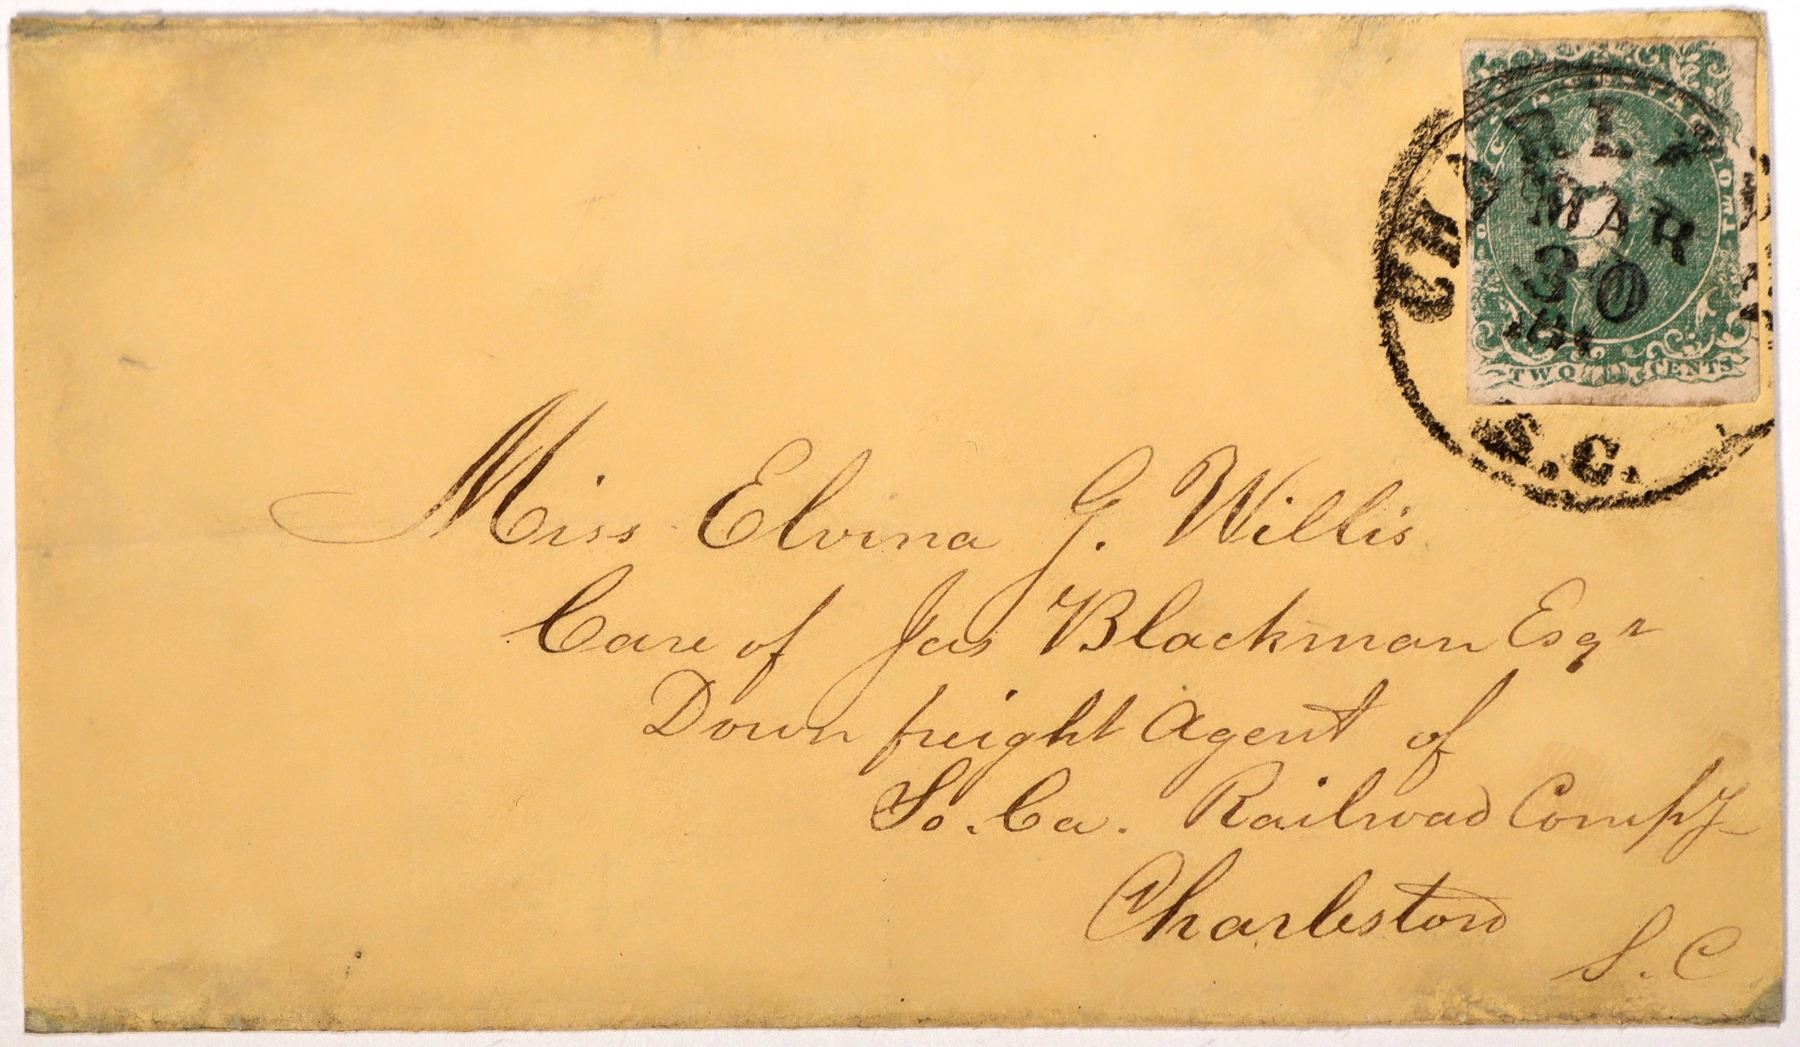 MAR
30
TWO CENTS
S.C.
Miss Elvina G. Willis
Care of Jas Blackman Esqr
Down freight Agent of
So. Ca. Railroad Compy
Charleston
S. C